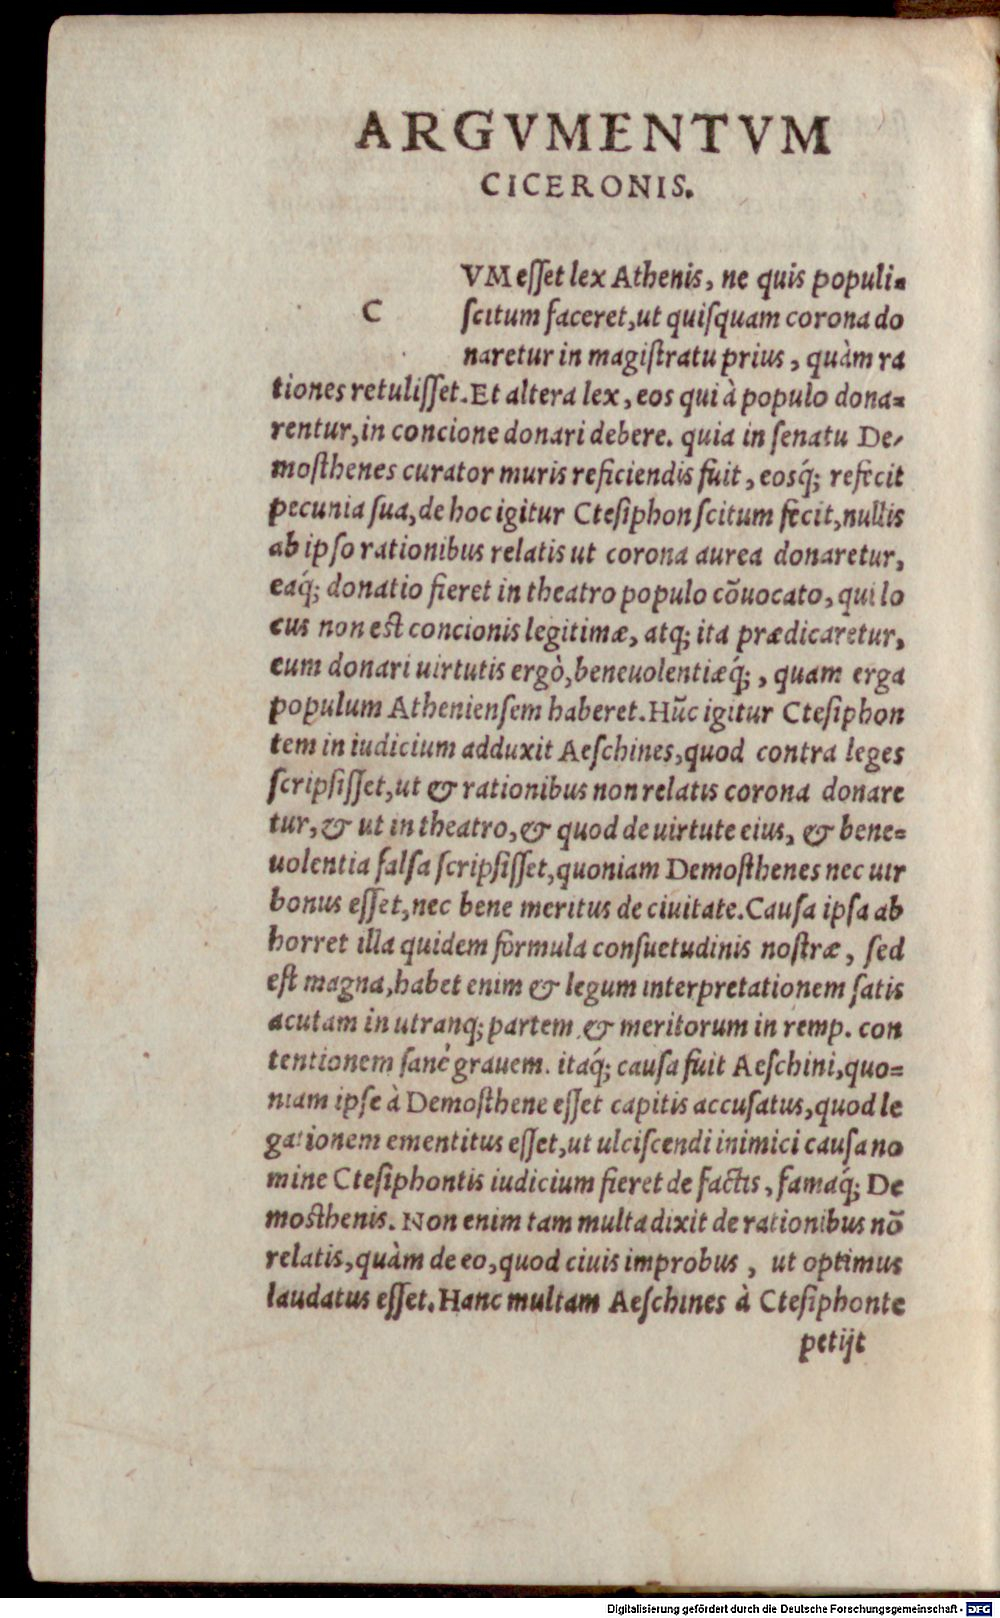 ARGVMENTVM
CICERONIS.
CVM eſſet lex Athenis, ne quis populi-
ſcitum faceret, ut quiſquam corona do
naretur in magiſtratu prius, quàm ra
tiones retuliſſet. Et altera lex, eos qui à populo dona-
rentur, in concione donari debere. quia in ſenatu De-
moſthenes curator muris reficiendis fuit, eosq́; refecit
pecunia ſua, de hoc igitur Cteſiphon ſcitum fecit, nullis
ab ipſo rationibus relatis ut corona aurea donaretur,
eaq́; donatio fieret in theatro populo cōuocato, qui lo
cus non est concionis legitimæ, atq; ita prædicaretur,
eum donari uirtutis ergò, beneuolentiæq́;, quam erga
populum Athenienſem haberet. Hūc igitur Cteſiphon
tem in iudicium adduxit Aeſchines, quod contra leges
ſcripſiſſet, ut & rationibus non relatis corona donare
tur, & ut in theatro, & quod de uirtute eius, & bene-
uolentia falſa ſcripſiſſet, quoniam Demoſthenes nec uir
bonus eſſet, nec bene meritus de ciuitate. Cauſa ipſa ab
horret illa quidem formula conſuetudinis noſtræ, ſed
eſt magna, habet enim & legum interpretationem ſatis
acutam in utranq; partem & meritorum in remp. con
tentionem ſanè grauem. itaq́; cauſa fuit Aeſchini, quo-
niam ipſe à Demoſthene eſſet capitis accuſatus, quod le
gationem ementitus eſſet, ut ulciſcendi inimici cauſa no
mine Cteſiphontis iudicium fieret de factis, famaq́; De
moſthenis. Non enim tam multa dixit de rationibus nō
relatis, quàm de eo, quod ciuis improbus, ut optimus
laudatus eſſet. Hanc multam Aeſchines à Cteſiphonte
petijt
Digitalisierung gefördert durch die Deutsche Forschungsgemeinschaft - DFG